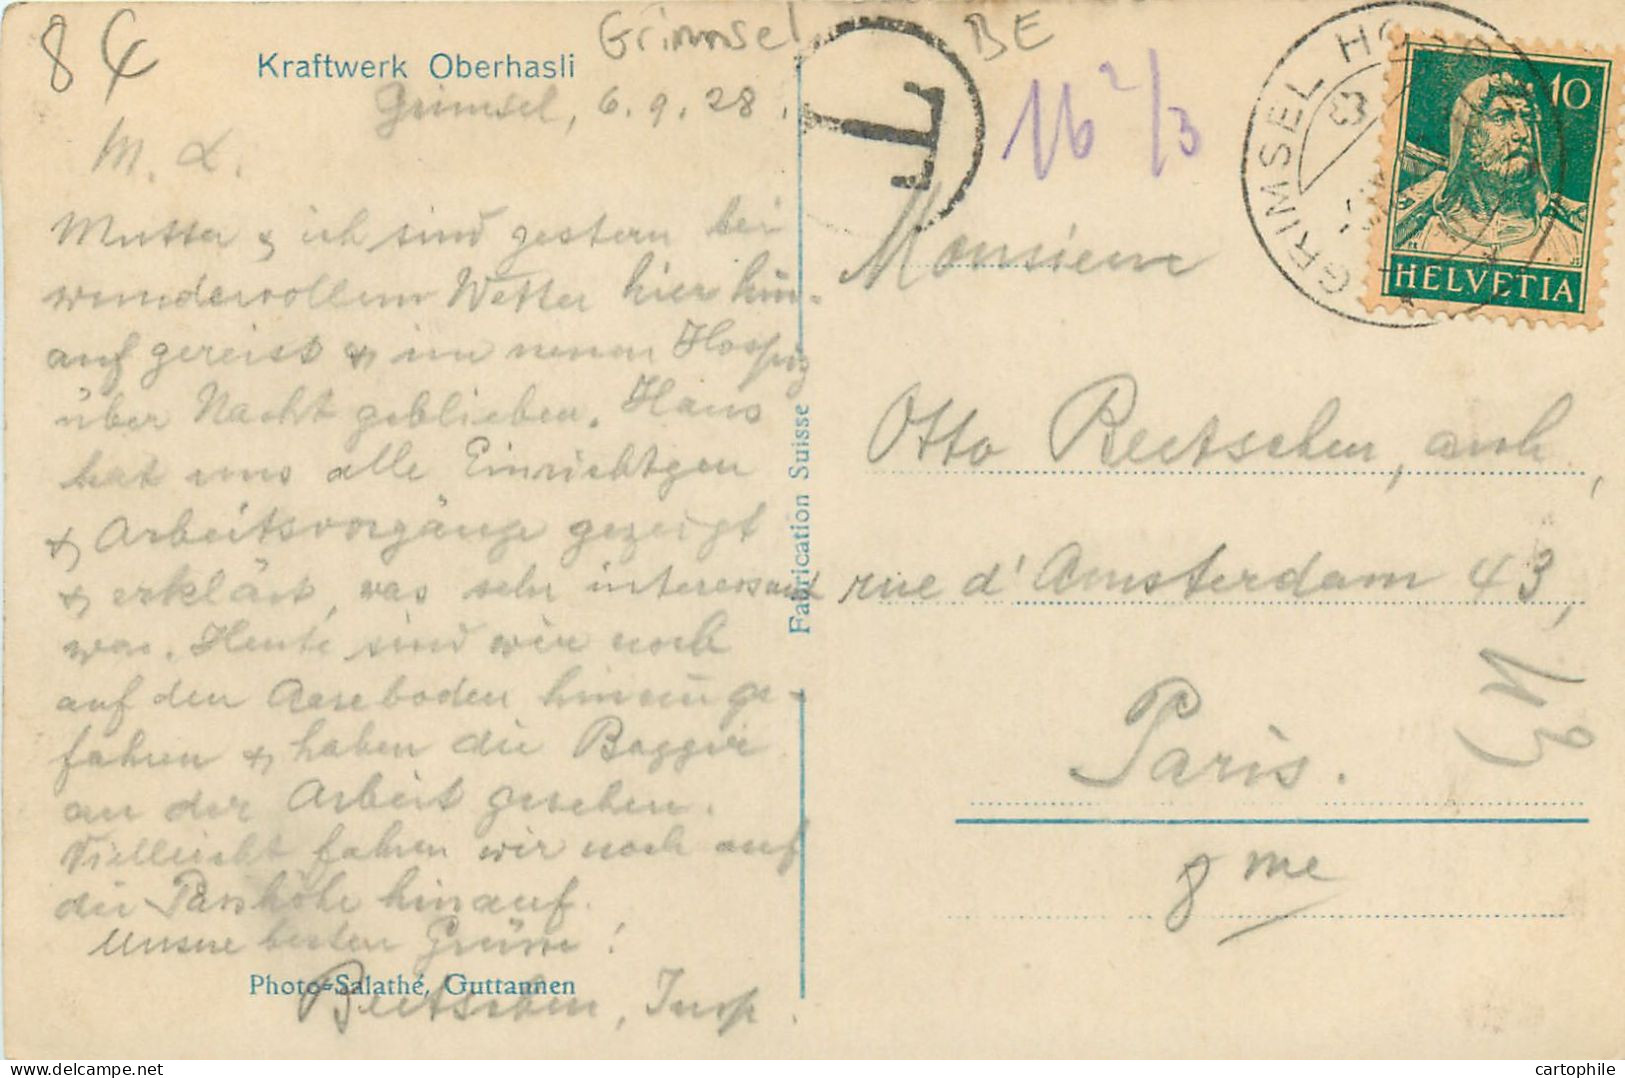 84
Grimsel
BE
Kraftwerk Oberhasli
T
16 2/3
GRIMSEL HOSPIZ
10
HELVETIA
Grimsel, 6.9.28.
M. L.
Mutter & ich sind gestern bei
wundervollem Wetter hier hin-
auf gereist & im neuen Hospiz
über Nacht geblieben. Hans
hat uns alle Einrichtgen
& Arbeitsvorgänge gezeigt
& erklärt, was sehr interessant
war. Heute sind wir noch
auf den Aareboden hinein ge-
fahren & haben die Bagger
an der Arbeit gesehen.
Vielleicht fahren wir noch auf
die Passhöhe hinauf.
Unsere besten Grüsse!
Bütschen, Insp.
Photo-Salathé, Guttannen
Fabrication Suisse
Monsieur
Otto, arch.,
rue d'Amsterdam 43,
Paris.
8me